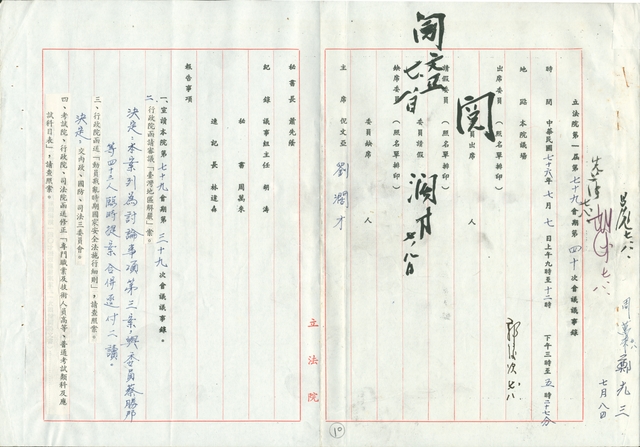 立法院第一屆第七十九會期第四十次會議議事錄
時間 中華民國七十六年七月七日上午九時至十二時
下午三時至五時二十七分
地點 本院議場
出席委員 人
(照名單排印)
請假委員 委員請假 人
(照名單排印)
缺席委員 委員缺席 人
(照名單排印)
主席 倪文亞 劉濶才
閱
閱
濶才
七月八日
秘書長 蕭先蔭
紀錄 議事組主任 胡濤
秘書 周萬來
速記長 林達森
報告事項
一、宣讀本院第七十九會期第三十九次會議議事錄。
二、行政院函請審議「臺灣地區解嚴」案。
決定:本案列為討論事項第三案,與委員蔡勝邦
等四十五人臨時提案合併逕付二讀。
三、行政院函送「動員戡亂時期國家安全法施行細則」,請查照案。
決定:交內政、國防、司法三委員會。
四、考試院、行政院、司法院函送修正「專門職業及技術人員高等、普通考試類科及應
試科目表」,請查照案。
立法院
10